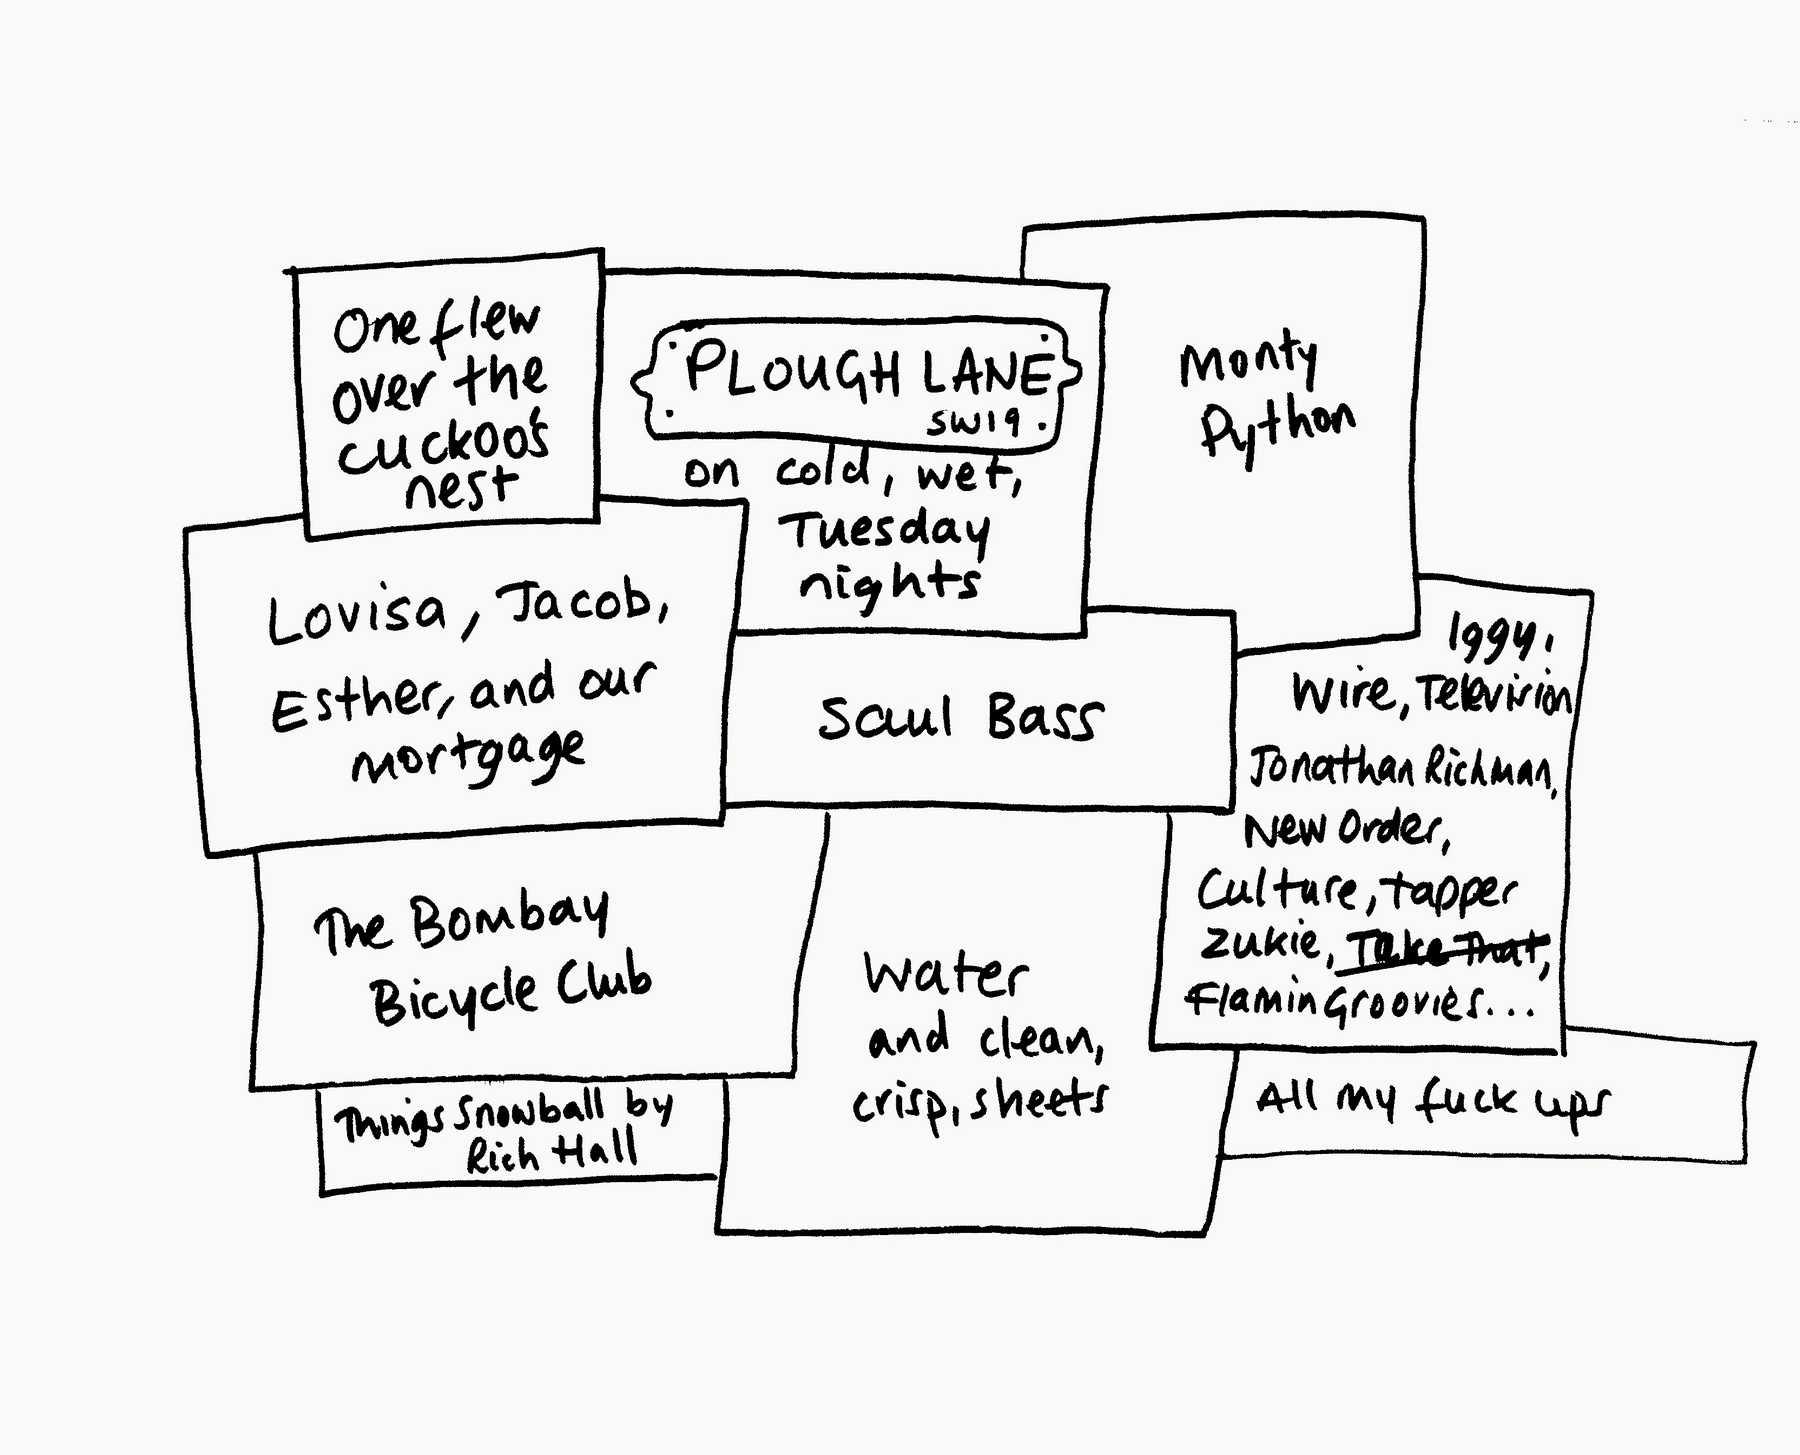 One flew
over the
cuckoo's
nest
PLOUGH LANE
SW19
on cold, wet,
Tuesday
nights
Monty
Python
Lovisa, Jacob,
Esther, and our
mortgage
Saul Bass
Iggy,
Wire, Television
Jonathan Richman,
New Order,
Culture, tapper
Zukie, Take That,
Flamin Groovies...
The Bombay
Bicycle Club
Water
and clean,
crisp, sheets
Things Snowball by
Rich Hall
All my fuck ups